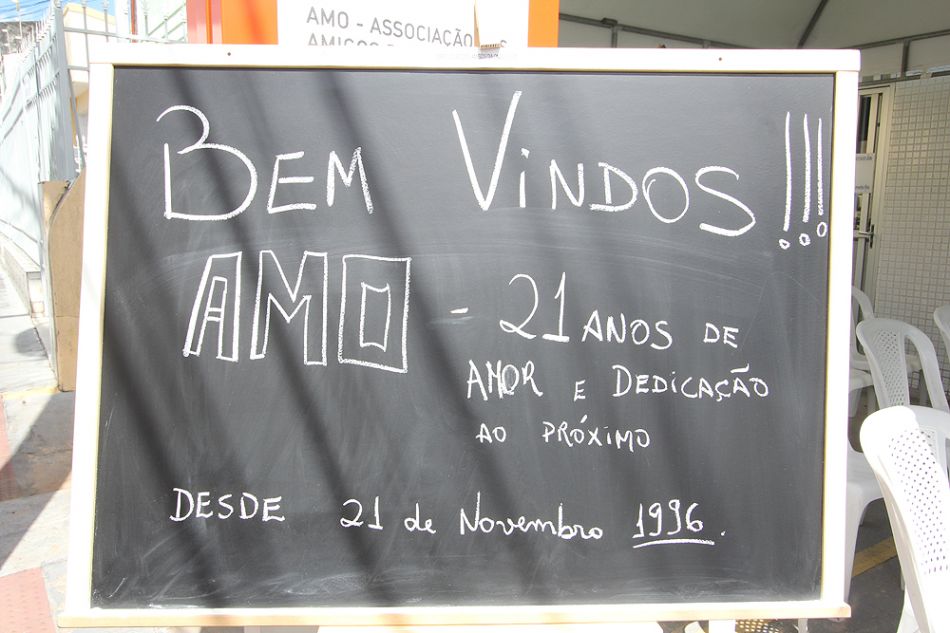 AMO - ASSOCIAÇÃO
AMIGOS
BEM VINDOS!!!
AMO - 21 ANOS DE
AMOR E DEDICAÇÃO
AO PRÓXIMO
DESDE 21 de Novembro 1996.